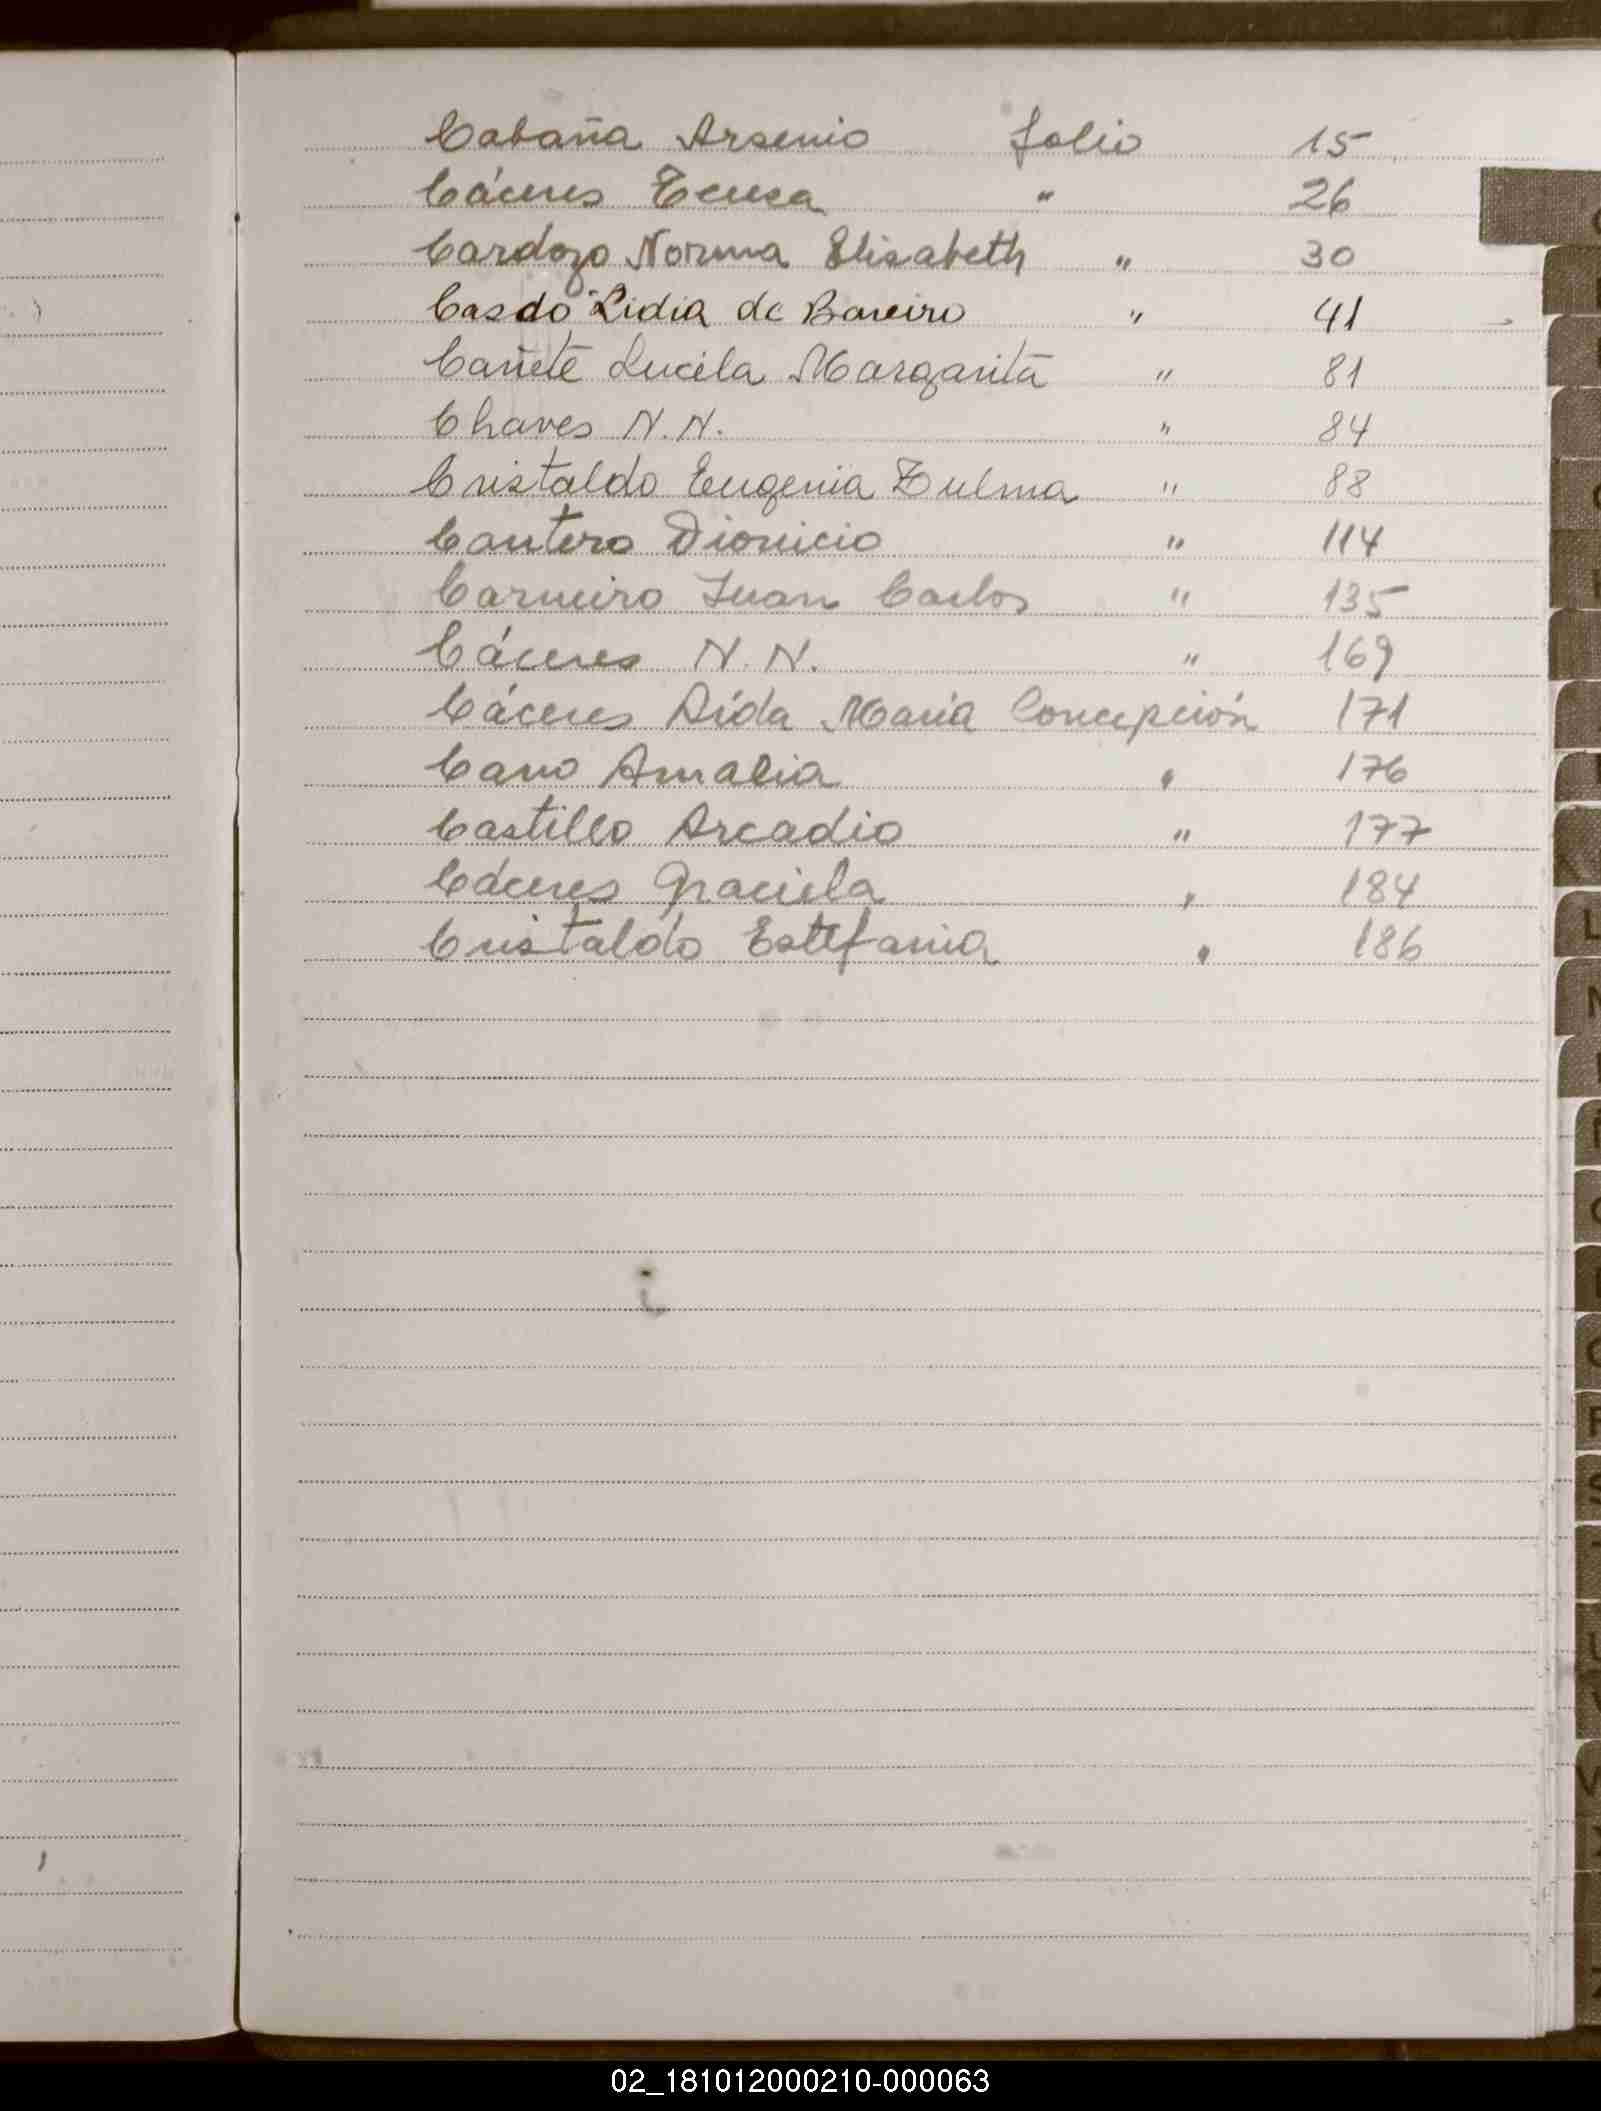 Cabaña Arsenio folio 15
Cáceres Teresa " 26
Cardozo Norma Elisabeth " 30
Casdo Lidia de Bareiro " 41
Cañete Lucila Margarita " 81
Chaves N.N. " 84
Cristaldo Eugenia Zulma " 88
Cantero Dionicio " 114
Carneiro Juan Carlos " 135
Cáceres N.N. " 169
Cáceres Aída María Concepción 171
Cano Amalia " 176
Castillo Arcadio " 177
Cáceres Graciela " 184
Cristaldo Estefania " 186
L
S
02_181012000210-000063